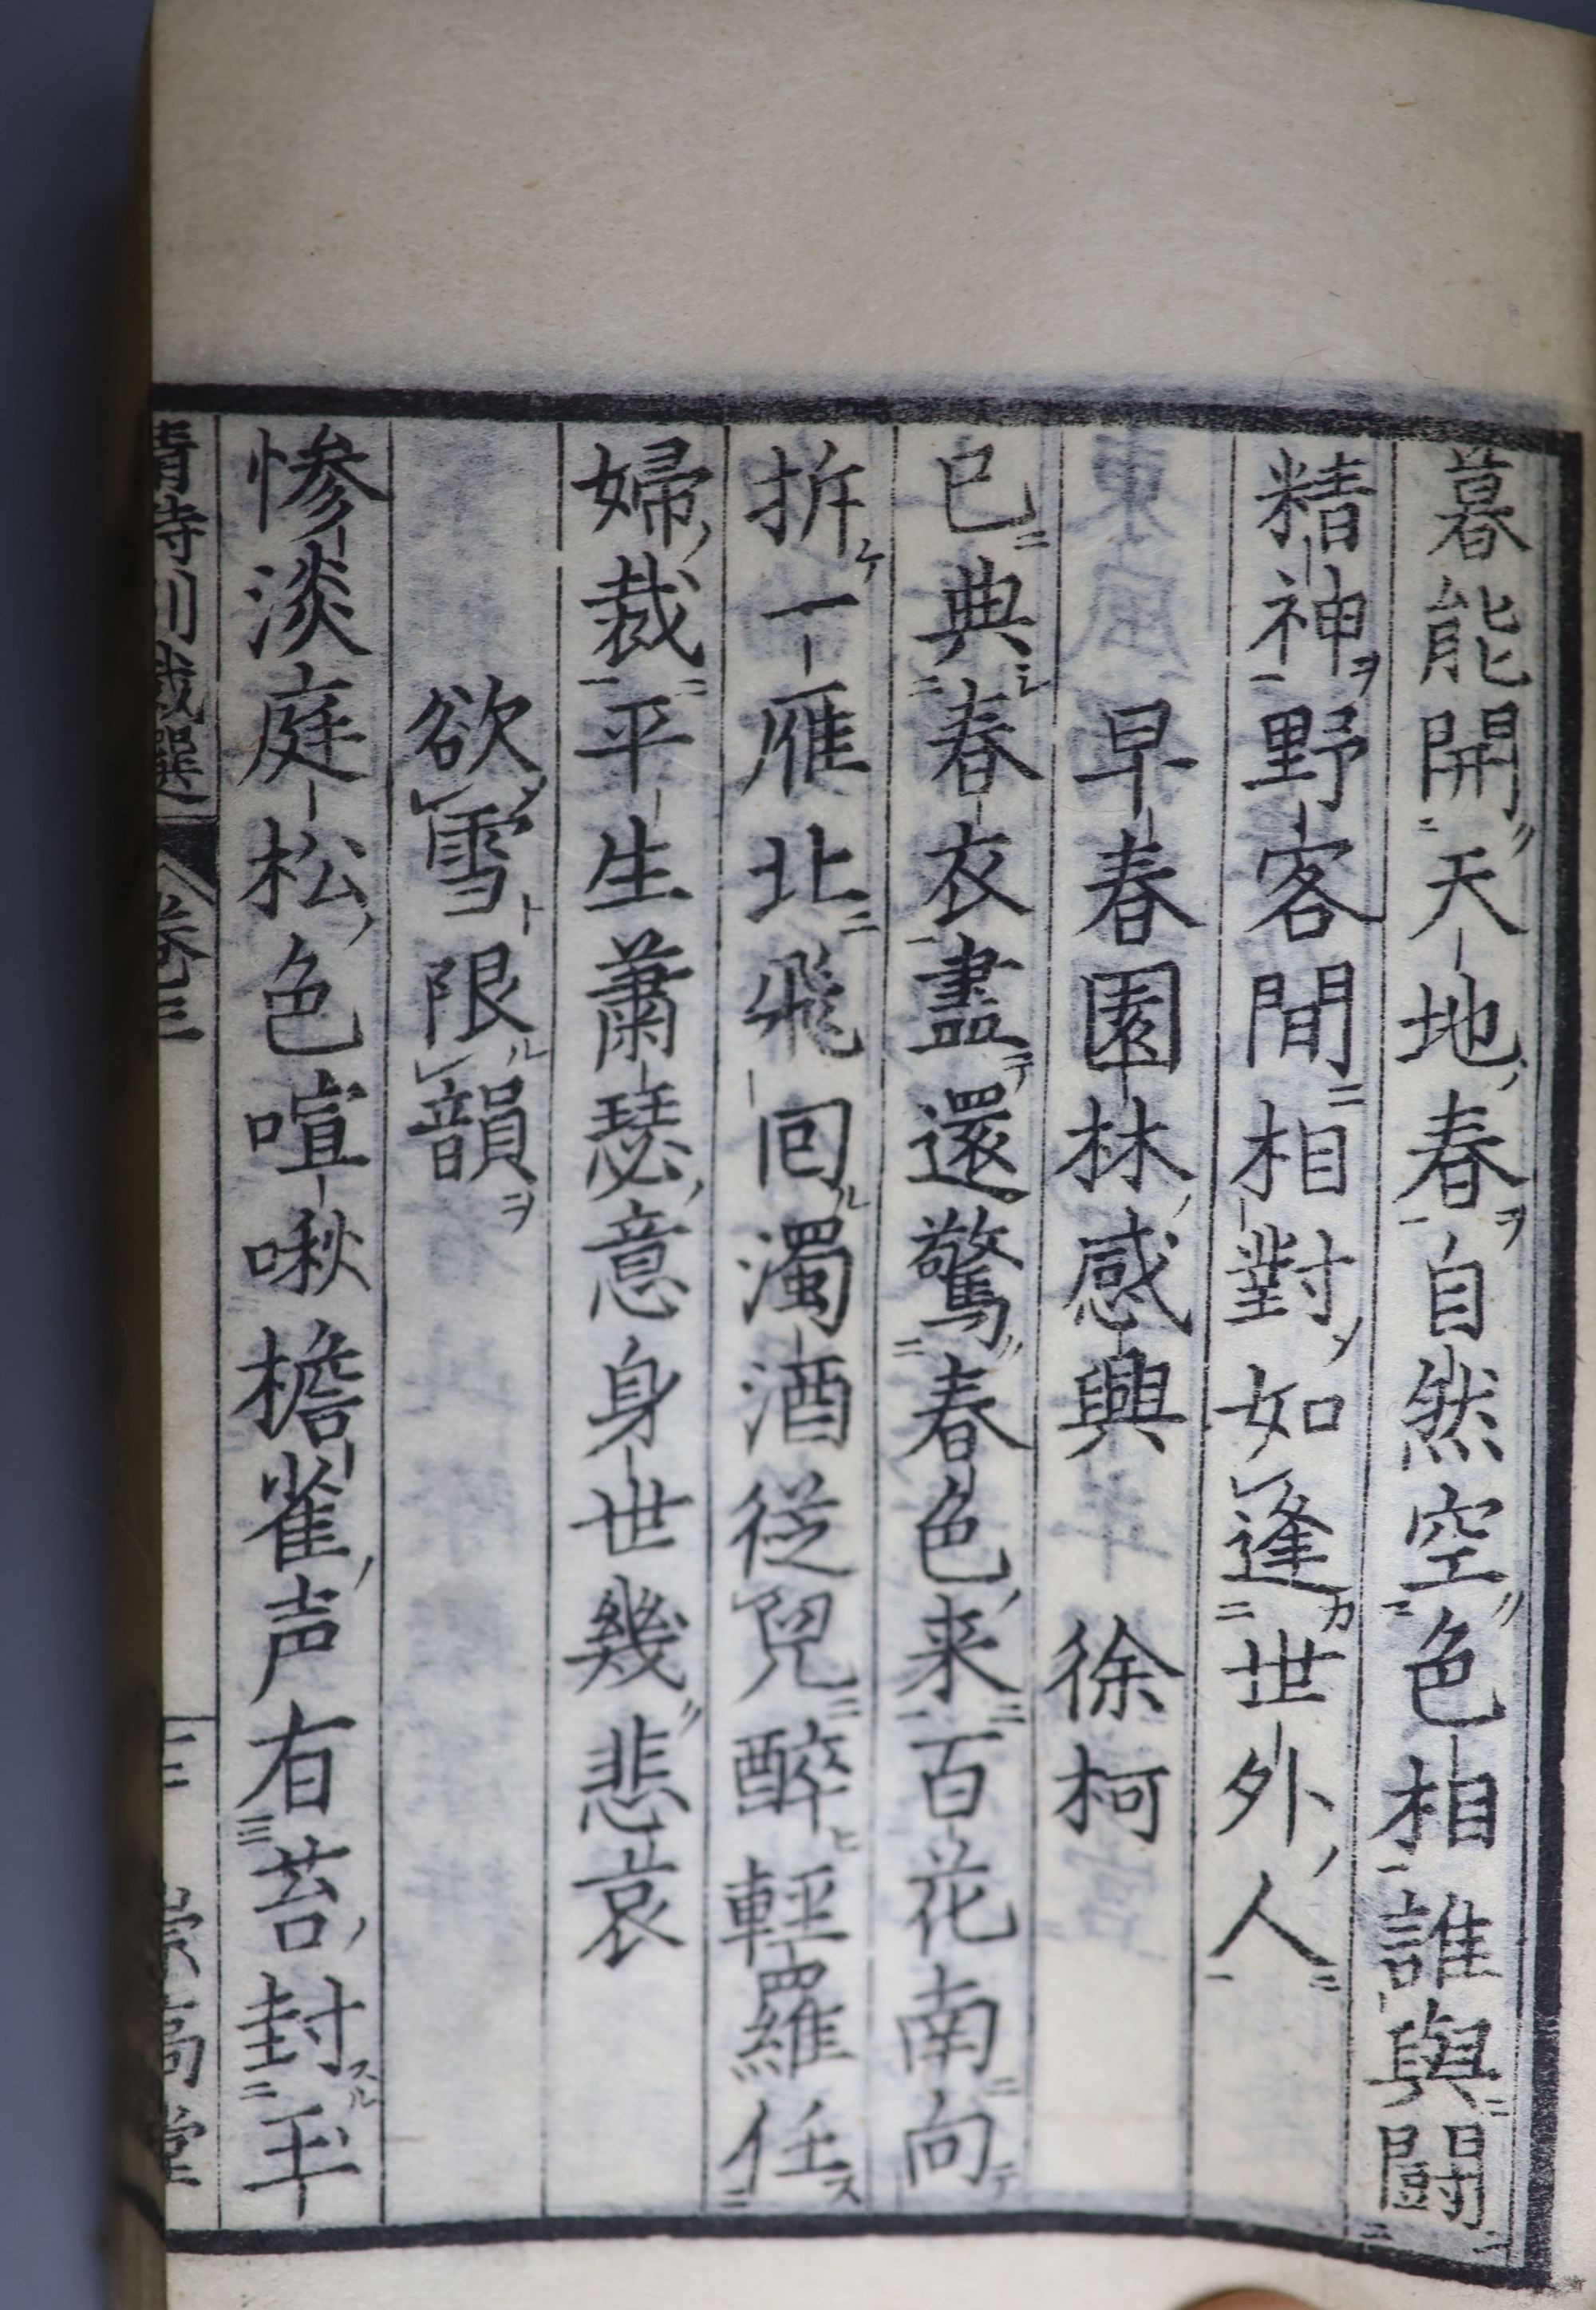 暮能開天地春自然空色相誰與鬪
精神野客間相對如逢世外人
早春園林感興 徐柯
已典春衣盡還驚春色来百花南向
拆一雁北飛囘濁酒從兒醉輕羅任
婦裁平生蕭瑟意身世幾悲哀
欲雪限韻
惨淡庭松色喧啾檐雀声有苔封玉
清詩別裁選 卷三 三 嵩高堂